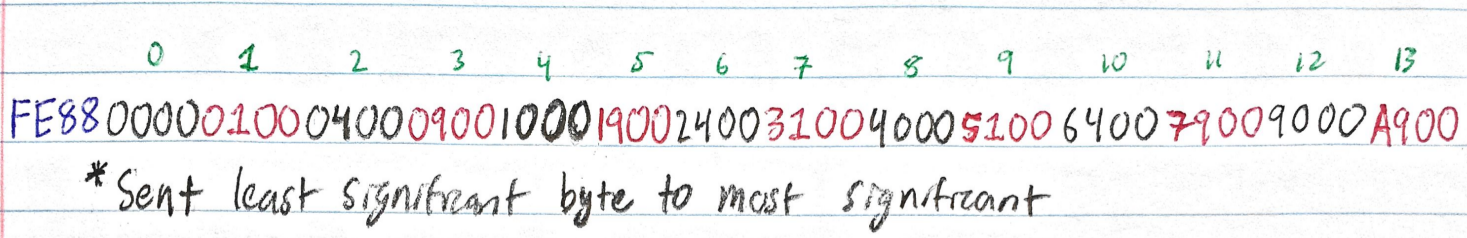 0 1 2 3 4 5 6 7 8 9 10 11 12 13
FE880000010004000900100019002400310040005100640079009000A900
*Sent least significant byte to most significant